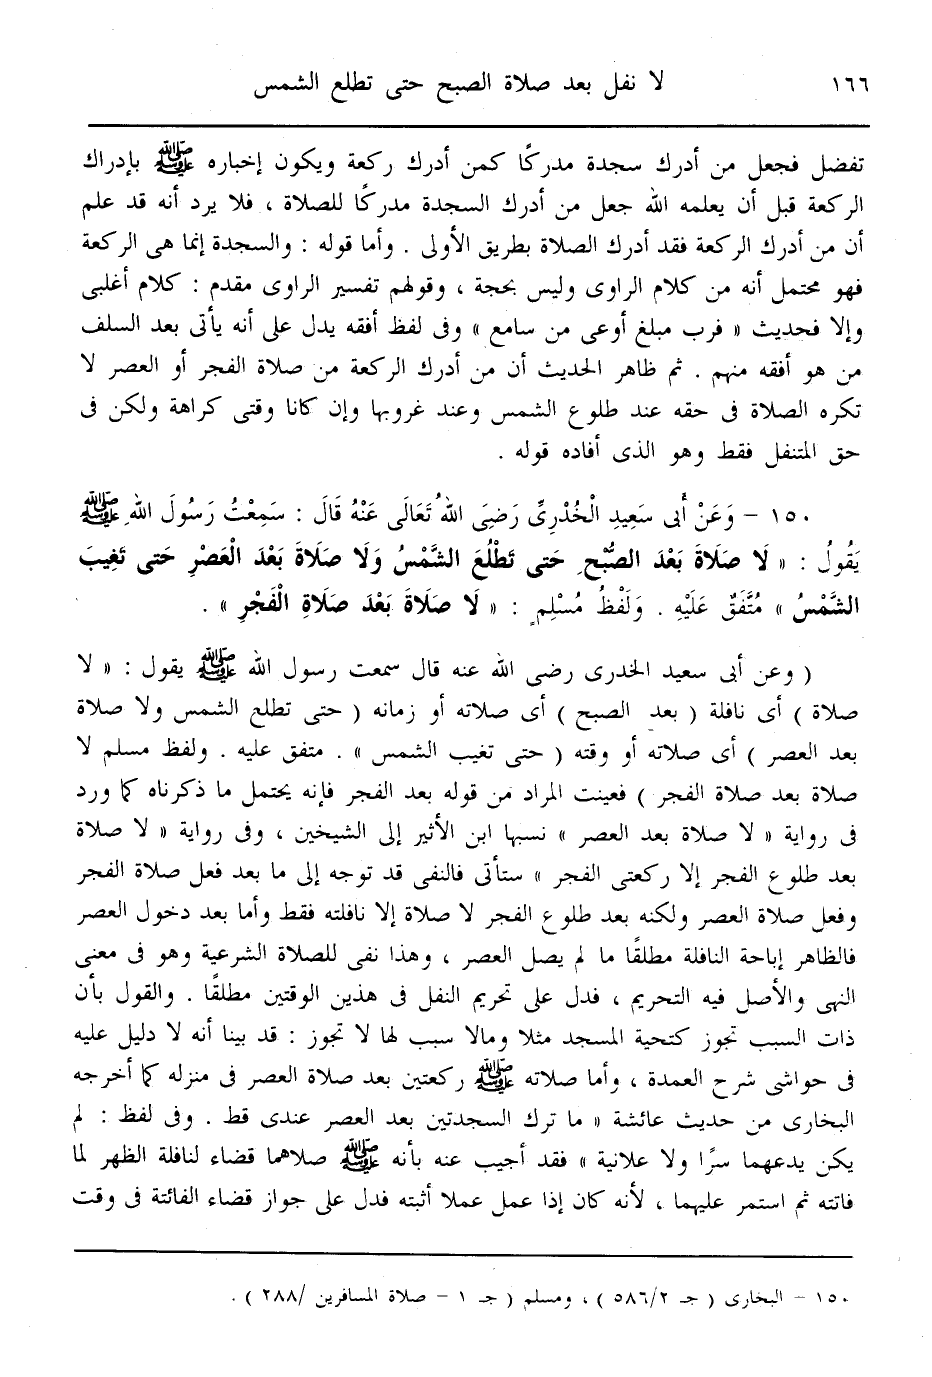 ١٦٦ لا نفل بعد صلاة الصبح حتى تطلع الشمس
تفضل فجعل من أدرك سجدة مدركًا كمن أدرك ركعة ويكون إخباره ﷺ بإدراك
الركعة قبل أن يعلمه الله جعل من أدرك السجدة مدركًا للصلاة ، فلا يرد أنه قد علم
أن من أدرك الركعة فقد أدرك الصلاة بطريق الأولى . وأما قوله : والسجدة إنما هى الركعة
فهو محتمل أنه من كلام الراوى وليس بحجة ، وقولهم تفسير الراوى مقدم : كلام أغلبى
وإلا فحديث « فرب مبلغ أوعى من سامع » وفى لفظ أفقه يدل على أنه يأتى بعد السلف
من هو أفقه منهم . ثم ظاهر الحديث أن من أدرك الركعة من صلاة الفجر أو العصر لا
تكره الصلاة فى حقه عند طلوع الشمس وعند غروبها وإن كانا وقتى كراهة ولكن فى
حق المتنفل فقط وهو الذى أفاده قوله .
١٥٠ – وَعَنْ أَبى سَعِيدِ الْخُدْرِىِّ رَضِىَ اللهُ تَعَالَى عَنْهُ قَالَ : سَمِعْتُ رَسُولَ اللهِ ﷺ
يَقُولُ : « لَا صَلَاةَ بَعْدَ الصُّبْحِ حَتى تَطْلُعَ الشَّمْسُ وَلَا صَلَاةَ بَعْدَ الْعَصْرِ حَتى تَغِيبَ
الشَّمْسُ » مُتَّفَقٌ عَلَيْهِ . وَلَفْظُ مُسْلِمٍ : « لَا صَلَاةَ بَعْدَ صَلَاةِ الْفَجْرِ » .
( وعن أبى سعيد الخدرى رضى الله عنه قال سمعت رسول الله ﷺ يقول : « لا
صلاة ) أى نافلة ( بعد الصبح ) أى صلاته أو زمانه ( حتى تطلع الشمس ولا صلاة
بعد العصر ) أى صلاته أو وقته ( حتى تغيب الشمس » . متفق عليه . ولفظ مسلم لا
صلاة بعد صلاة الفجر ) فعينت المراد من قوله بعد الفجر فإنه يحتمل ما ذكرناه كما ورد
فى رواية « لا صلاة بعد العصر » نسبها ابن الأثير إلى الشيخين ، وفى رواية « لا صلاة
بعد طلوع الفجر إلا ركعتى الفجر » ستأتى فالنفى قد توجه إلى ما بعد فعل صلاة الفجر
وفعل صلاة العصر ولكنه بعد طلوع الفجر لا صلاة إلا نافلته فقط وأما بعد دخول العصر
فالظاهر إباحة النافلة مطلقًا ما لم يصل العصر ، وهذا نفى للصلاة الشرعية وهو فى معنى
النهى والأصل فيه التحريم ، فدل على تحريم النفل فى هذين الوقتين مطلقًا . والقول بأن
ذات السبب تجوز كتحية المسجد مثلا ومالا سبب لها لا تجوز : قد بينا أنه لا دليل عليه
فى حواشى شرح العمدة ، وأما صلاته ﷺ ركعتين بعد صلاة العصر فى منزله كما أخرجه
البخارى من حديث عائشة « ما ترك السجدتين بعد العصر عندى قط . وفى لفظ : لم
يكن يدعهما سرًا ولا علانية » فقد أجيب عنه بأنه ﷺ صلاهما قضاء لنافلة الظهر لما
فاتته ثم استمر عليهما ، لأنه كان إذا عمل عملا أثبته فدل على جواز قضاء الفائتة فى وقت
١٥٠ – البخارى ( جـ ٥٨٦/٢ ) ، ومسلم ( جـ ١ – صلاة المسافرين /٢٨٨ ) .